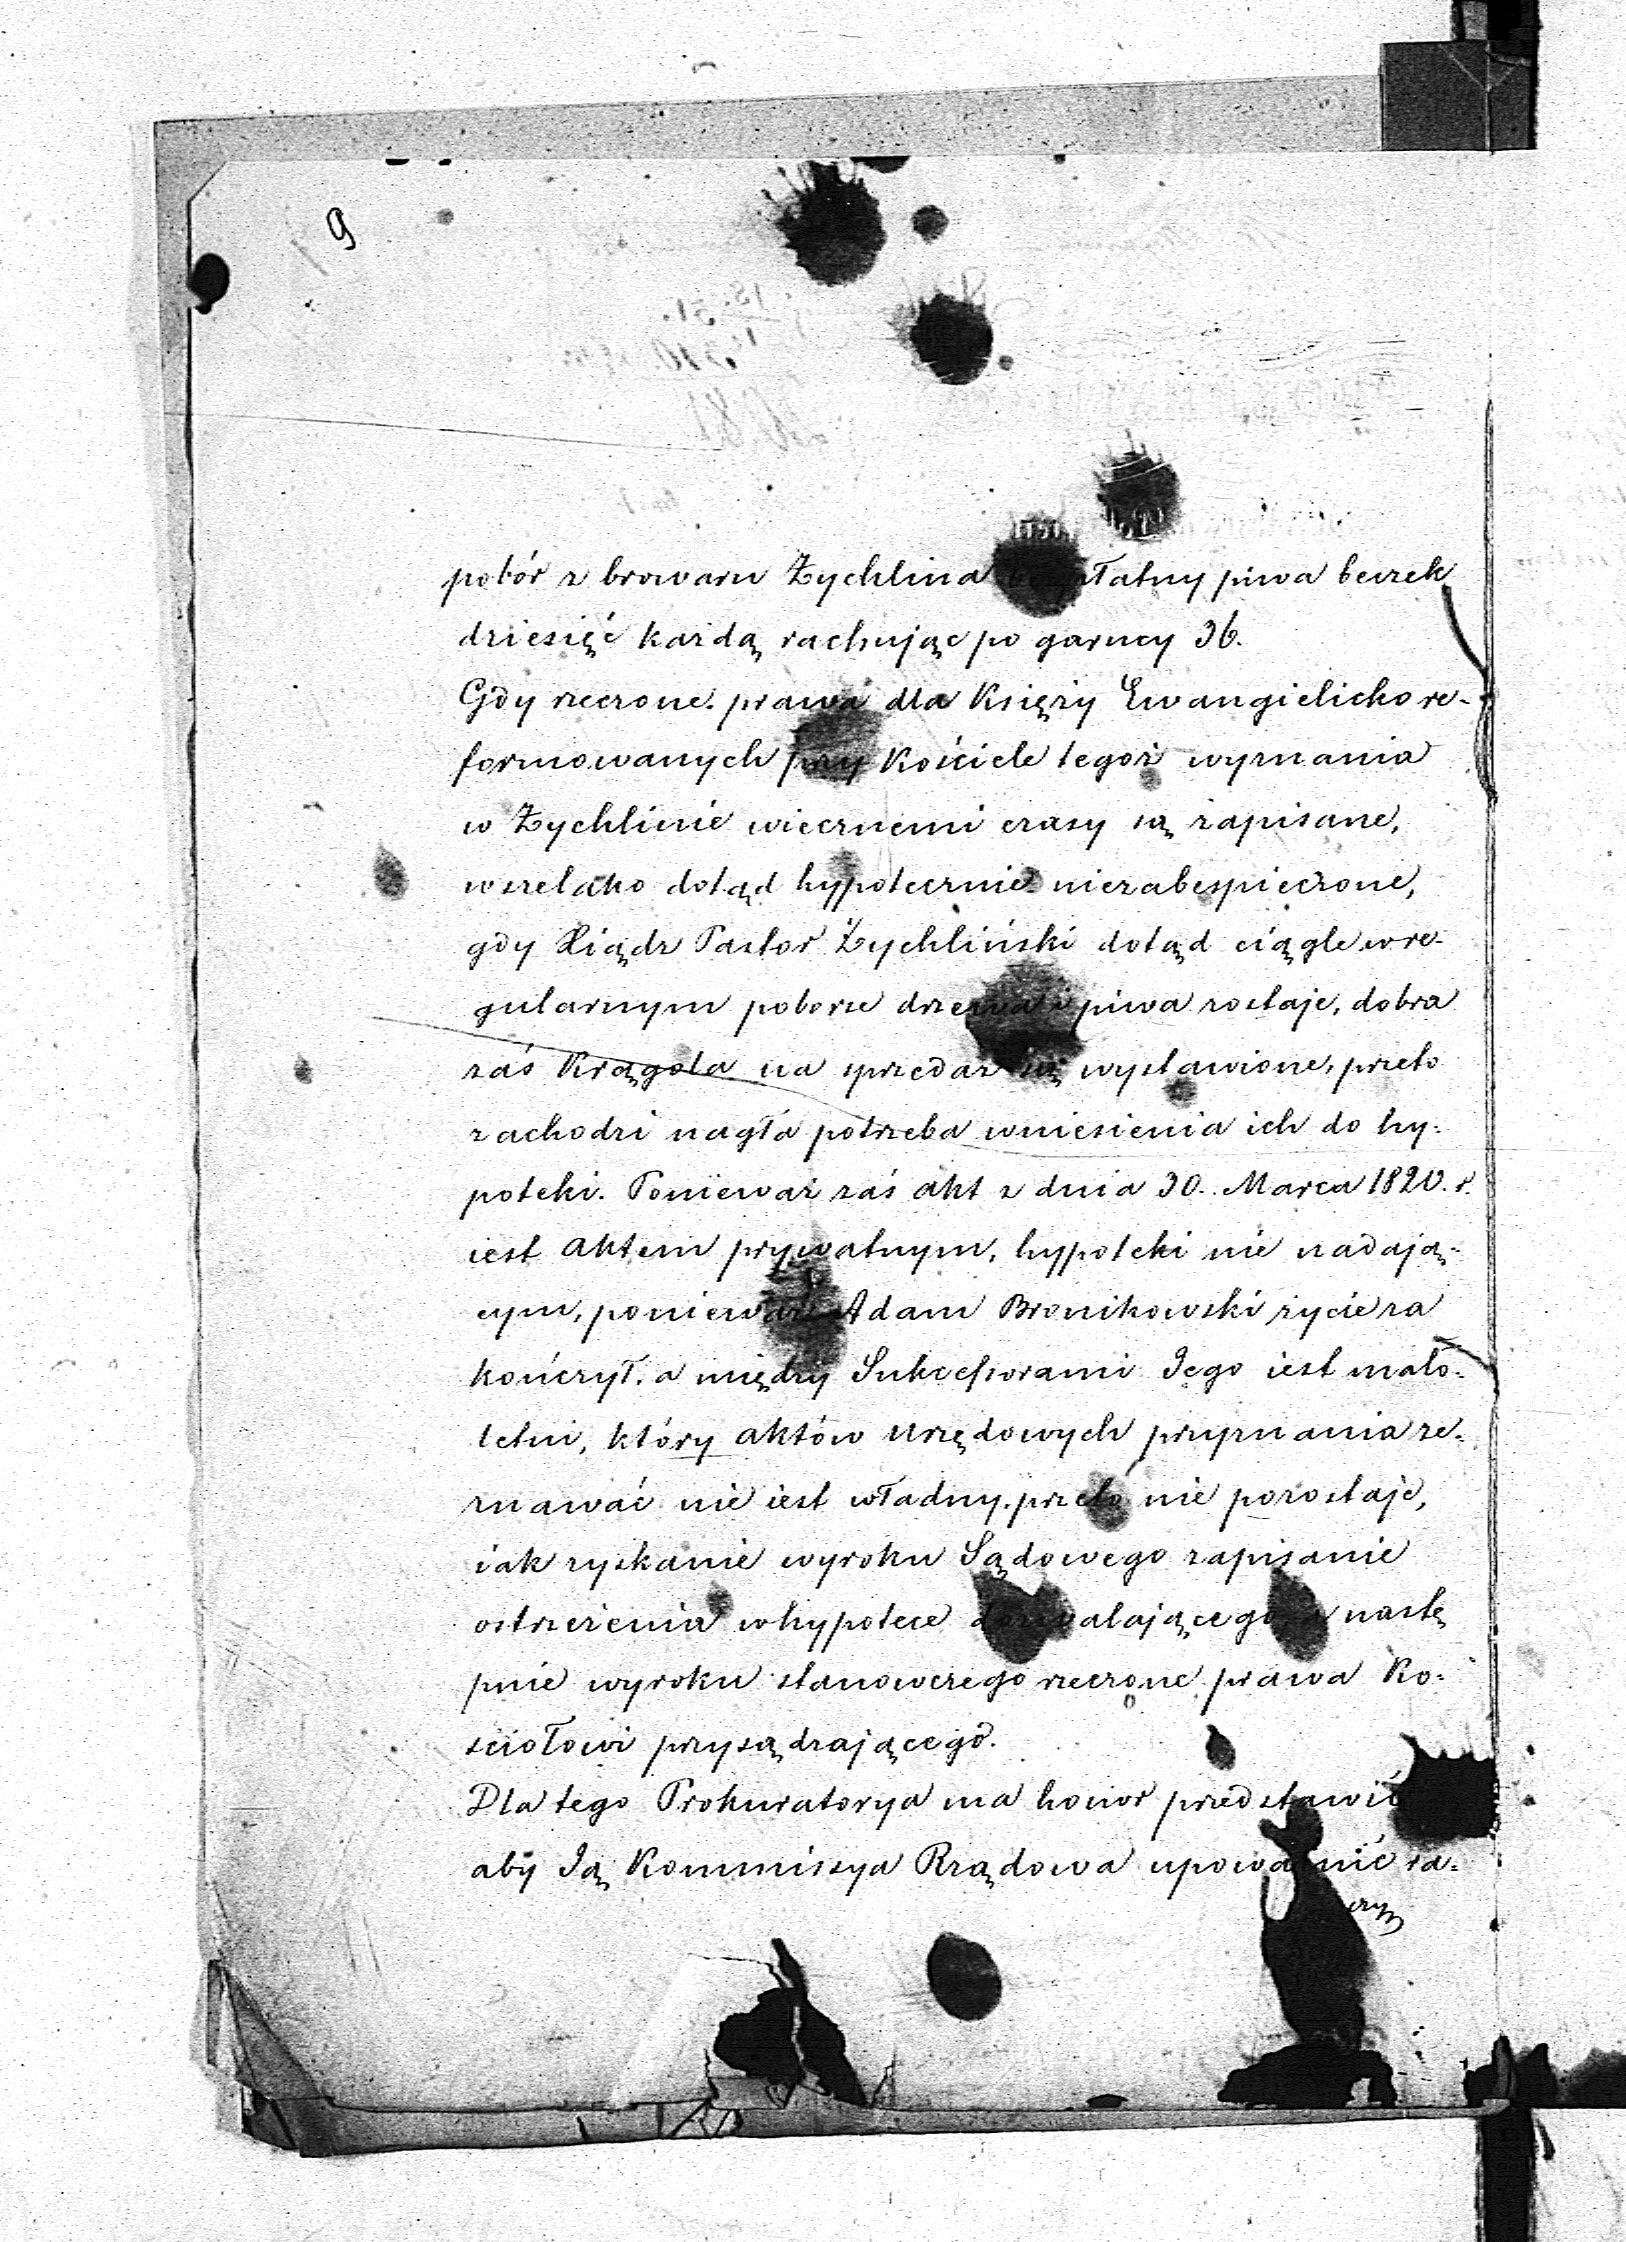 9
pobór z browaru Żychlina bezpłatny piwa beczek
dziesięć każdą rachując po garncy 36.
Gdy rzeczone prawa dla Księży Ewangielicko re-
formowanych przy Kościele tegoż wyznania
w Żychlinie wiecznemi czasy są zapisane,
wszelako dotąd hypotecznie niezabespieczone,
gdy Xiądz Pastor Żychliński dotąd ciągle w re-
gularnym poborze drzewa i piwa zostaje, dobra
zaś Krągola na sprzedaż są wystawione, przeto
zachodzi nagła potrzeba wniesienia ich do hy-
poteki. Ponieważ zaś akt z dnia 30. Marca 1820. r.
iest aktem prywatnym, hypoteki nie nadają-
cym, ponieważ Adam Bronikowski życie za
kończył, a między Sukcessorami Jego iest mało-
letni, który aktów urzędowych przyznania ze-
znawać nie iest władny, przeto nie pozostaje,
iak zyskanie wyroku Sądowego zapisanie
ostrzeżenia w hypotece dozwalającego a nastę
pnie wyroku stanowczego rzeczone prawa Ko-
ściołowi przysądzającego.
Dla tego Prokuratorya ma honor przedstawić
aby Ją Kommissya Rządowa upoważnić ra-
czy